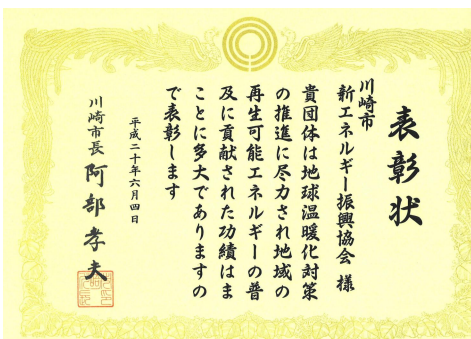 表彰状
川崎市
新エネルギー振興協会 様
貴団体は地球温暖化対策
の推進に尽力され地域の
再生可能エネルギーの普
及に貢献された功績はま
ことに多大でありますの
で表彰します
平成二十年六月四日
川崎市長 阿部孝夫